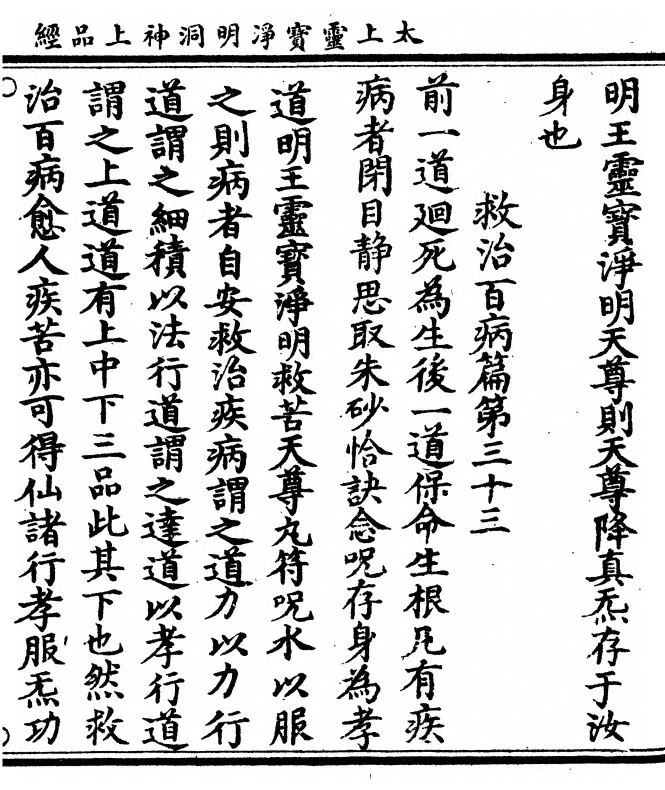 太上靈寶淨明洞神上品經
明王靈寶淨明天尊則天尊降真炁存于汝
身也
救治百病篇第三十三
前一道廻死為生後一道保命生根凡有疾
病者閉目静思取朱砂恰訣念呪存身為孝
道明王靈寶淨明救苦天尊丸符呪水以服
之則病者自安救治疾病謂之道力以力行
道謂之細積以法行道謂之達道以孝行道
謂之上道道有上中下三品此其下也然救
治百病愈人疾苦亦可得仙諸行孝服炁功